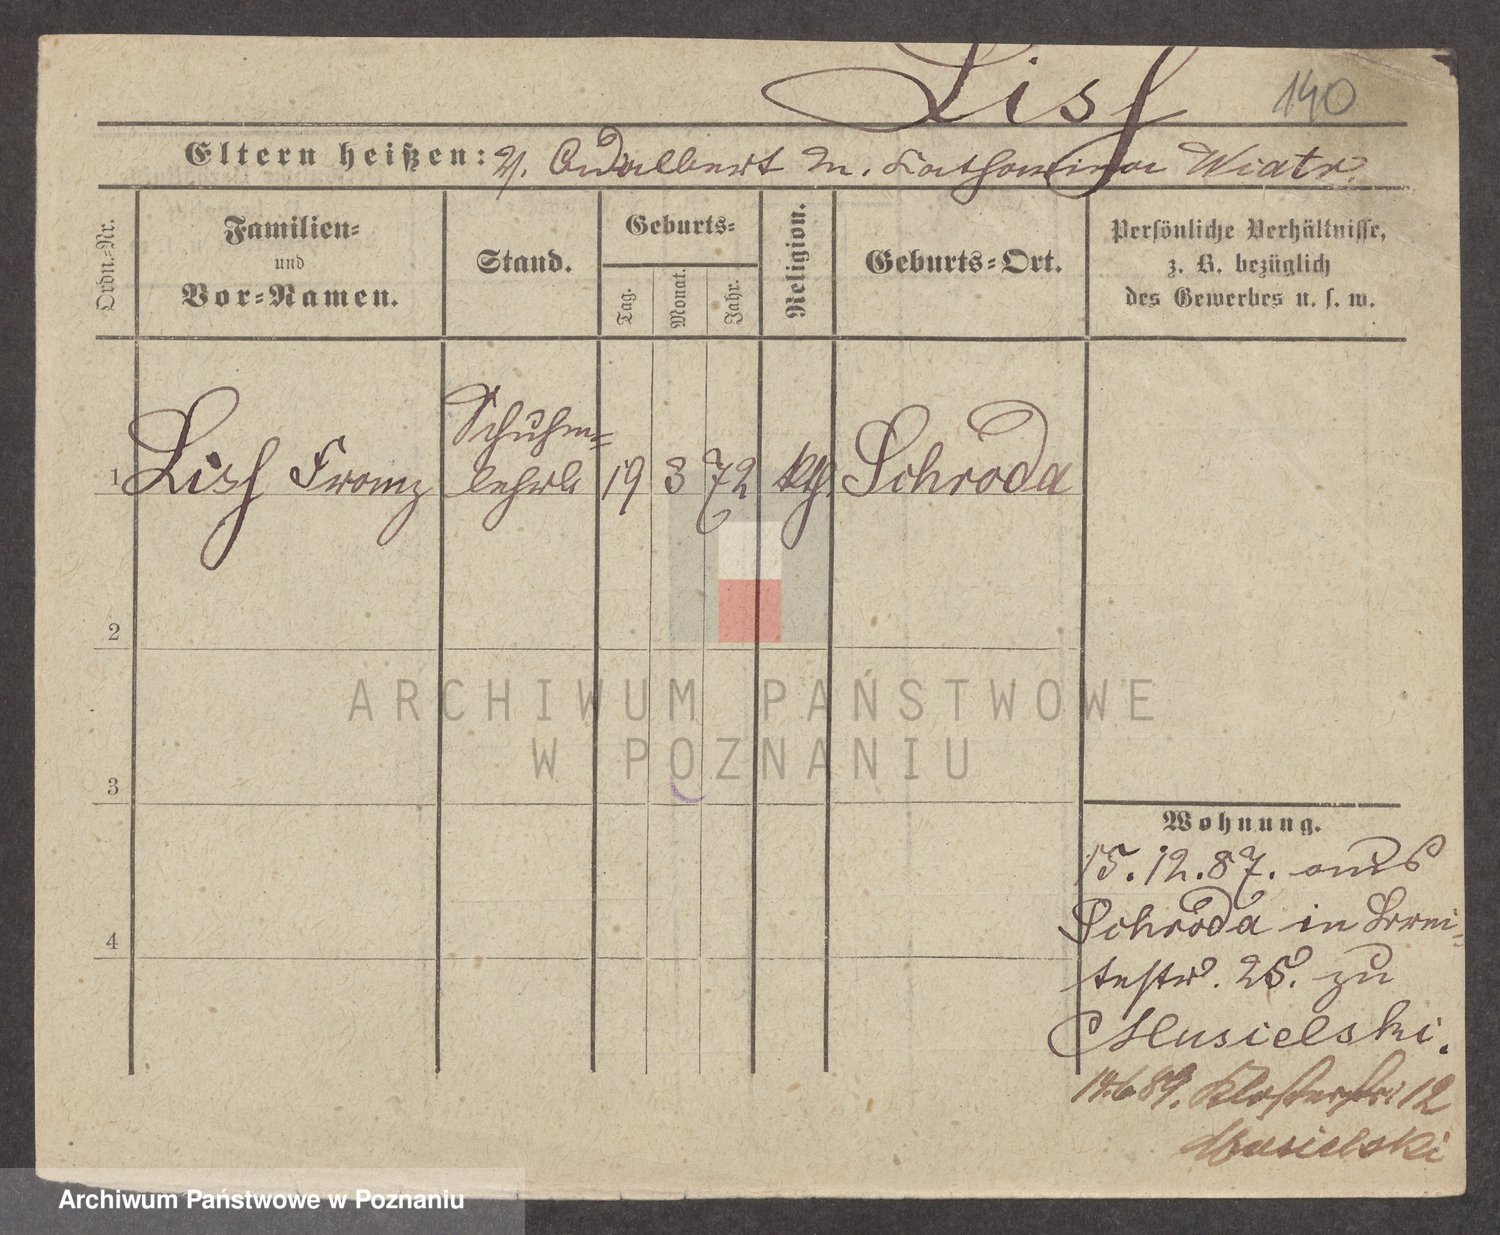 Lis 140
Eltern heißen: V. Adalbert M. Katharina Wiatr.
Ordn.-Nr.
Familien-
und
Vor-Namen.
Stand.
Geburts-
Tag.
Monat.
Jahr.
Religion.
Geburts-Ort.
Persönliche Verhältnisse,
z. B. bezüglich
des Gewerbes u. s. w.
Schuhm-
1 Lis Franz lehrli 19 3 72 kth Schroda
2
3
4
ARCHIWUM PAŃSTWOWE
W POZNANIU
Wohnung.
15.12.87. aus
Schroda in Brei-
testr. 25. zu
Musielski.
14.6.89. Klosterstr. 12
Musielski
Archiwum Państwowe w Poznaniu